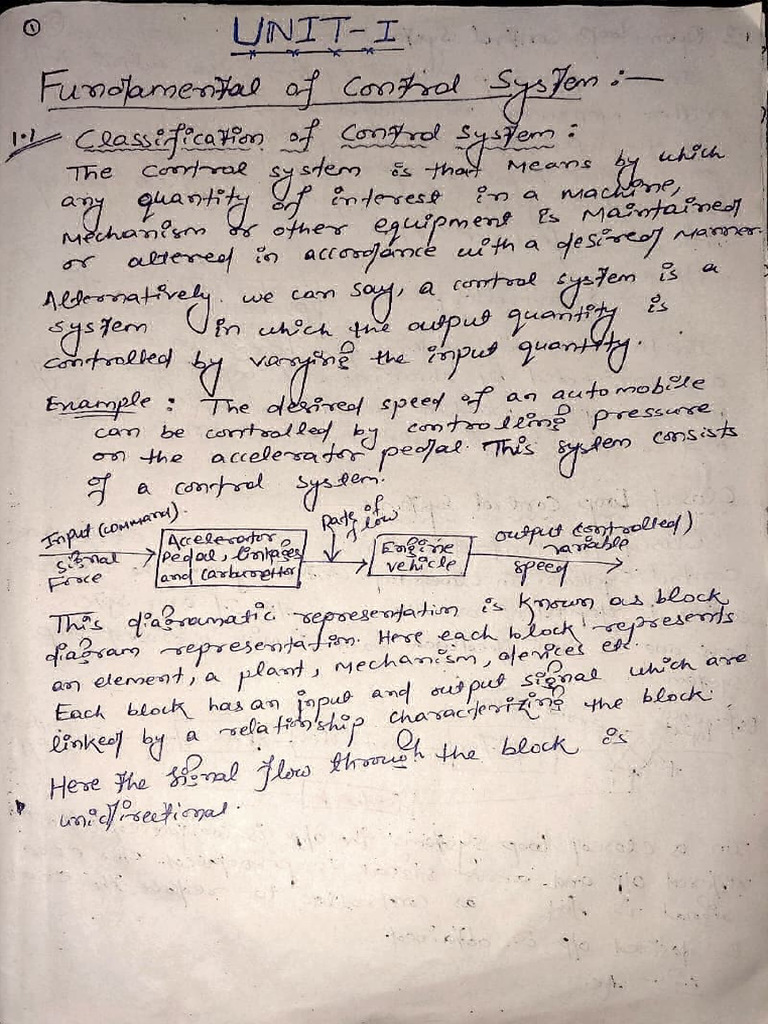 1
UNIT-I
Fundamental of Control System :-
1.1 Classification of Control System :
The control system is that means by which
any quantity of interest in a machine,
mechanism or other equipment is maintained
or altered in accordance with a desired manner.
Alternatively we can say, a control system is a
system in which the output quantity is
controlled by varying the input quantity.
Example : The desired speed of an automobile
can be controlled by controlling pressure
on the accelerator pedal. This system consists
of a control system.
Input (command)
Signal
Force
Accelerator
Pedal, linkages
and carburettor
Rate of
flow
Engine
vehicle
output controlled)
variable
speed
This diagramatic representation is known as block
diagram representation. Here each block represents
an element, a plant, mechanism, devices etc.
Each block has an input and output signal which are
linked by a relationship characterizing the block.
Here the signal flow through the block is
unidirectional.